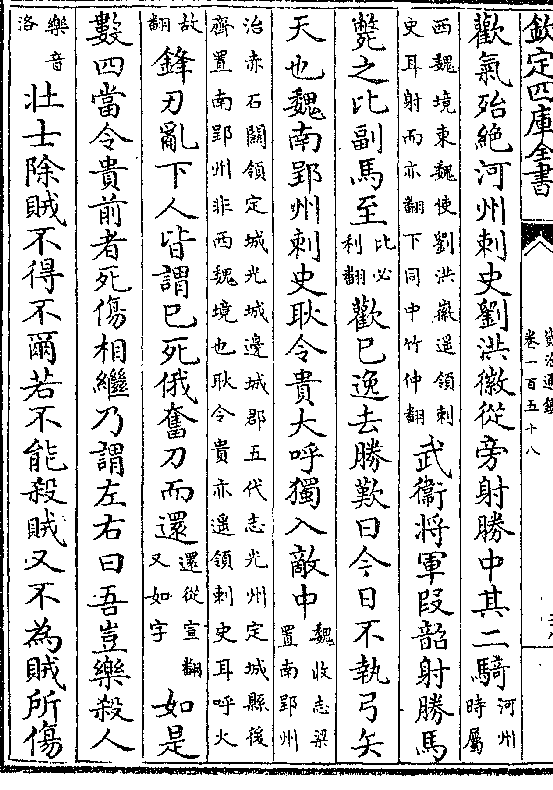 欽定四庫全書
資治通鑑
卷一百五十八
歡氣殆絶河州刺史劉洪徽從旁射勝中其二騎河州時屬
西魏境東魏使劉洪徽遥領刺史耳射而亦翻下同中竹仲翻武衞將軍段韶射勝馬
斃之比副馬至比必利翻歡已逸去勝歎曰今日不執弓矢
天也魏南郢州刺史耿令貴大呼獨入敵中魏收志梁置南郢州
治赤石關領定城光城邊城郡五代志光州定城縣後齊置南郢州非西魏境也耿令貴亦遥領刺史耳呼火
故翻鋒刃亂下人皆謂已死俄奮刀而還還從宣翻又如字如是
數四當令貴前者死傷相繼乃謂左右曰吾豈樂殺人
樂音洛壯士除賊不得不爾若不能殺賊又不為賊所傷